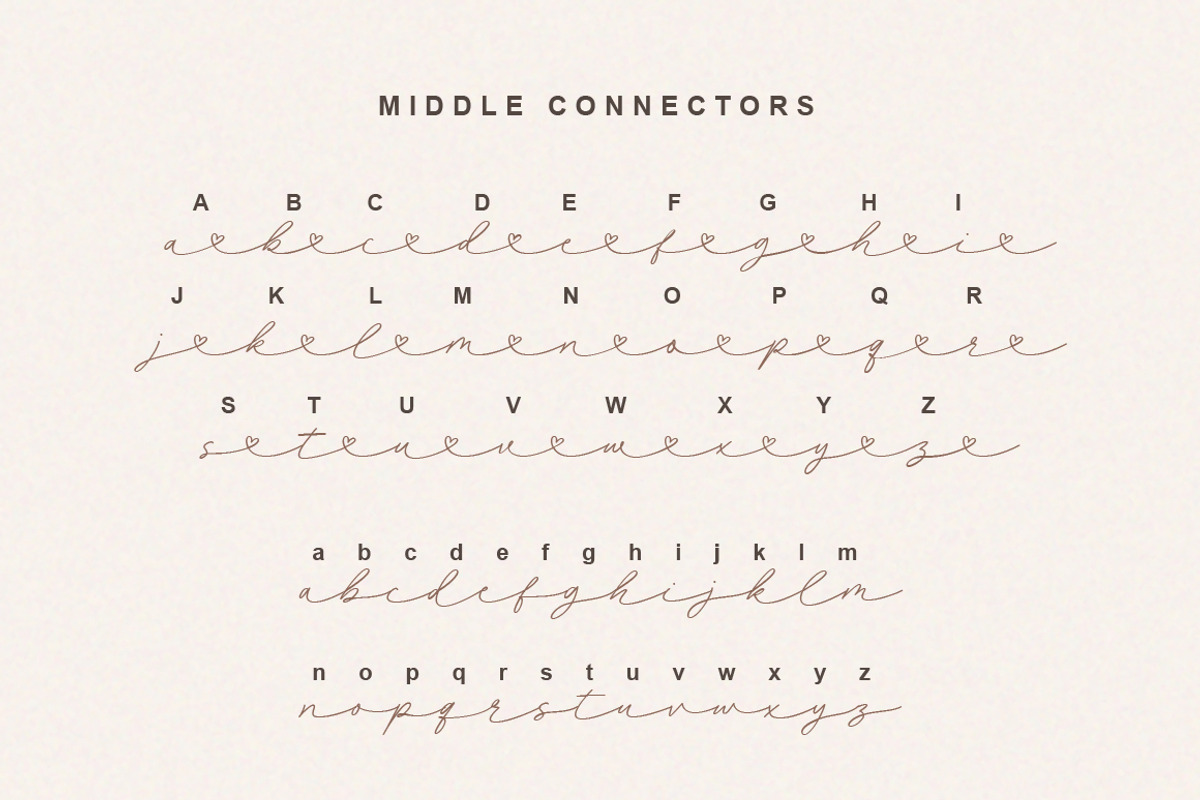 MIDDLE CONNECTORS
A B C D E F G H I
a b c d e f g h i
J K L M N O P Q R
j k l m n o p q r
S T U V W X Y Z
s t u v w x y z
a b c d e f g h i j k l m
abcdefghijklm
n o p q r s t u v w x y z
nopqrstuvwxyz